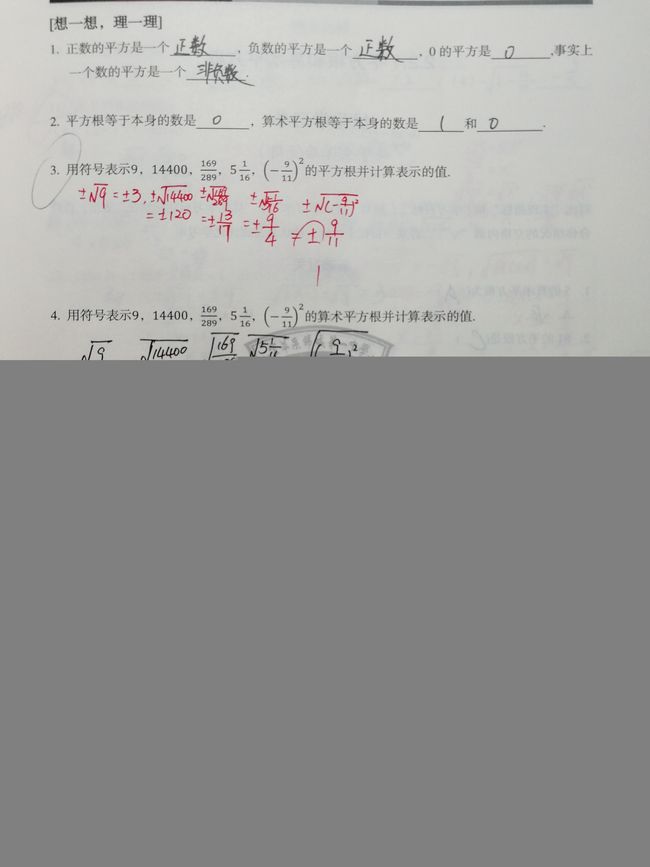 [想一想，理一理]
1. 正数的平方是一个 正数 ，负数的平方是一个 正数 ，0 的平方是 0 ,事实上
一个数的平方是一个 非负数 .
2. 平方根等于本身的数是 0 ，算术平方根等于本身的数是 1 和 0 .
3. 用符号表示9，14400，169/289，5 1/16，(−9/11)²的平方根并计算表示的值.
±√9 = ±3, ±√14400 ±√169/289 ±√5 1/16 ±√(−9/11)²
= ±120 = ±13/17 = ±9/4 = ±9/11
4. 用符号表示9，14400，169/289，5 1/16，(−9/11)²的算术平方根并计算表示的值.
√9 √14400 √169 √5 1/16 √( 9 )²